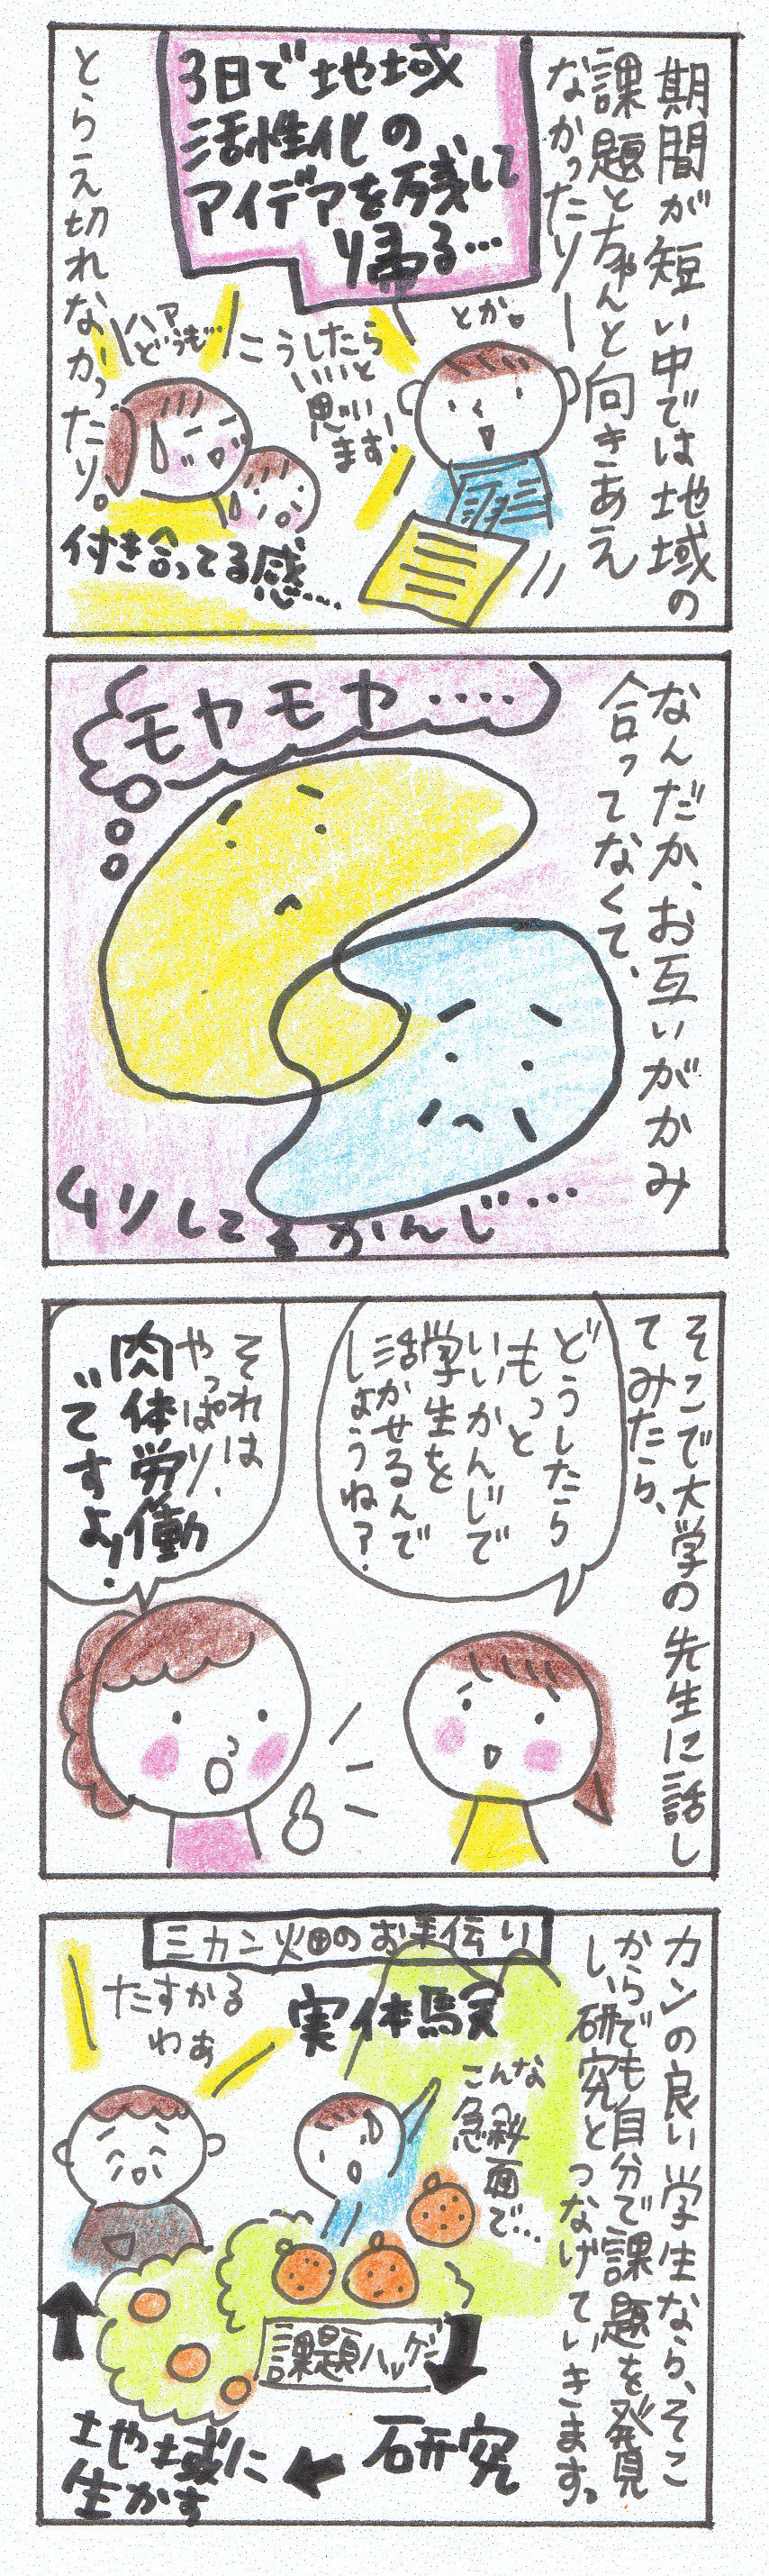 期間が短い中では地域の
課題とちゃんと向きあえ
なかったりー
とか。
3日で地域
活性化の
アイデアを残して
帰る…
こうしたら
いいと
思い
ます!
ハァ
どうも…
とらえ切れなかったり。
付き合ってる感…
なんだか、お互いがかみ
合ってなくて、
モヤモヤ‥‥
ムリしてるかんじ…
そこで大学の先生に話し
てみたら、
どうしたら
もっと
いいかんじで
学生を
活かせるんで
しょうね?
それは
やっぱり、
肉体労働
ですよ!
カンの良い学生なら、そこ
からでも自分で課題を発見
し、研究と つなげていきます。
ミカン畑のお手伝い
実体験
たすかる
わぁ
こんな
急斜面で…
課題ハッケン
研究
地域に
生かす